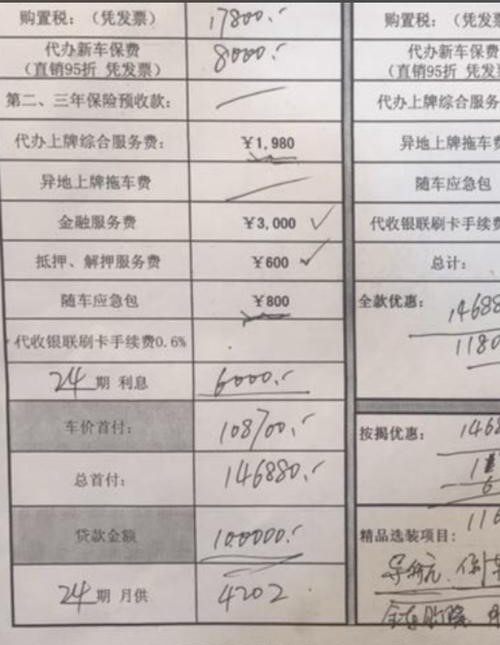 购置税：（凭发票） 17800.-
代办新车保费 8000.-
（直销95折 凭发票）
第二、三年保险预收款：
代办上牌综合服务费： ￥1,980
异地上牌拖车费
金融服务费 ￥3,000
抵押、解押服务费 ￥600
随车应急包 ￥800
代收银联刷卡手续费0.6%
24期 利息 6000.-
车价首付： 108700.-
总首付： 146880.-
贷款金额 100000.-
24期 月供 4202
购置税：（凭发
代办新车保费
（直销95折 凭发
代办上牌综合服务
异地上牌拖车费
随车应急包
代收银联刷卡手续费
总计：
全款优惠： 14688
1180
按揭优惠： 1468
116
精品选装项目：